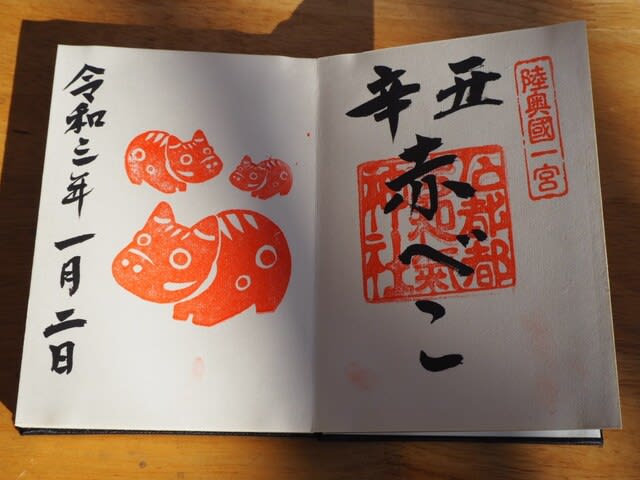 陸奥國一宮
辛丑
赤べこ
石都都
古和氣
神社
令和三年一月二日